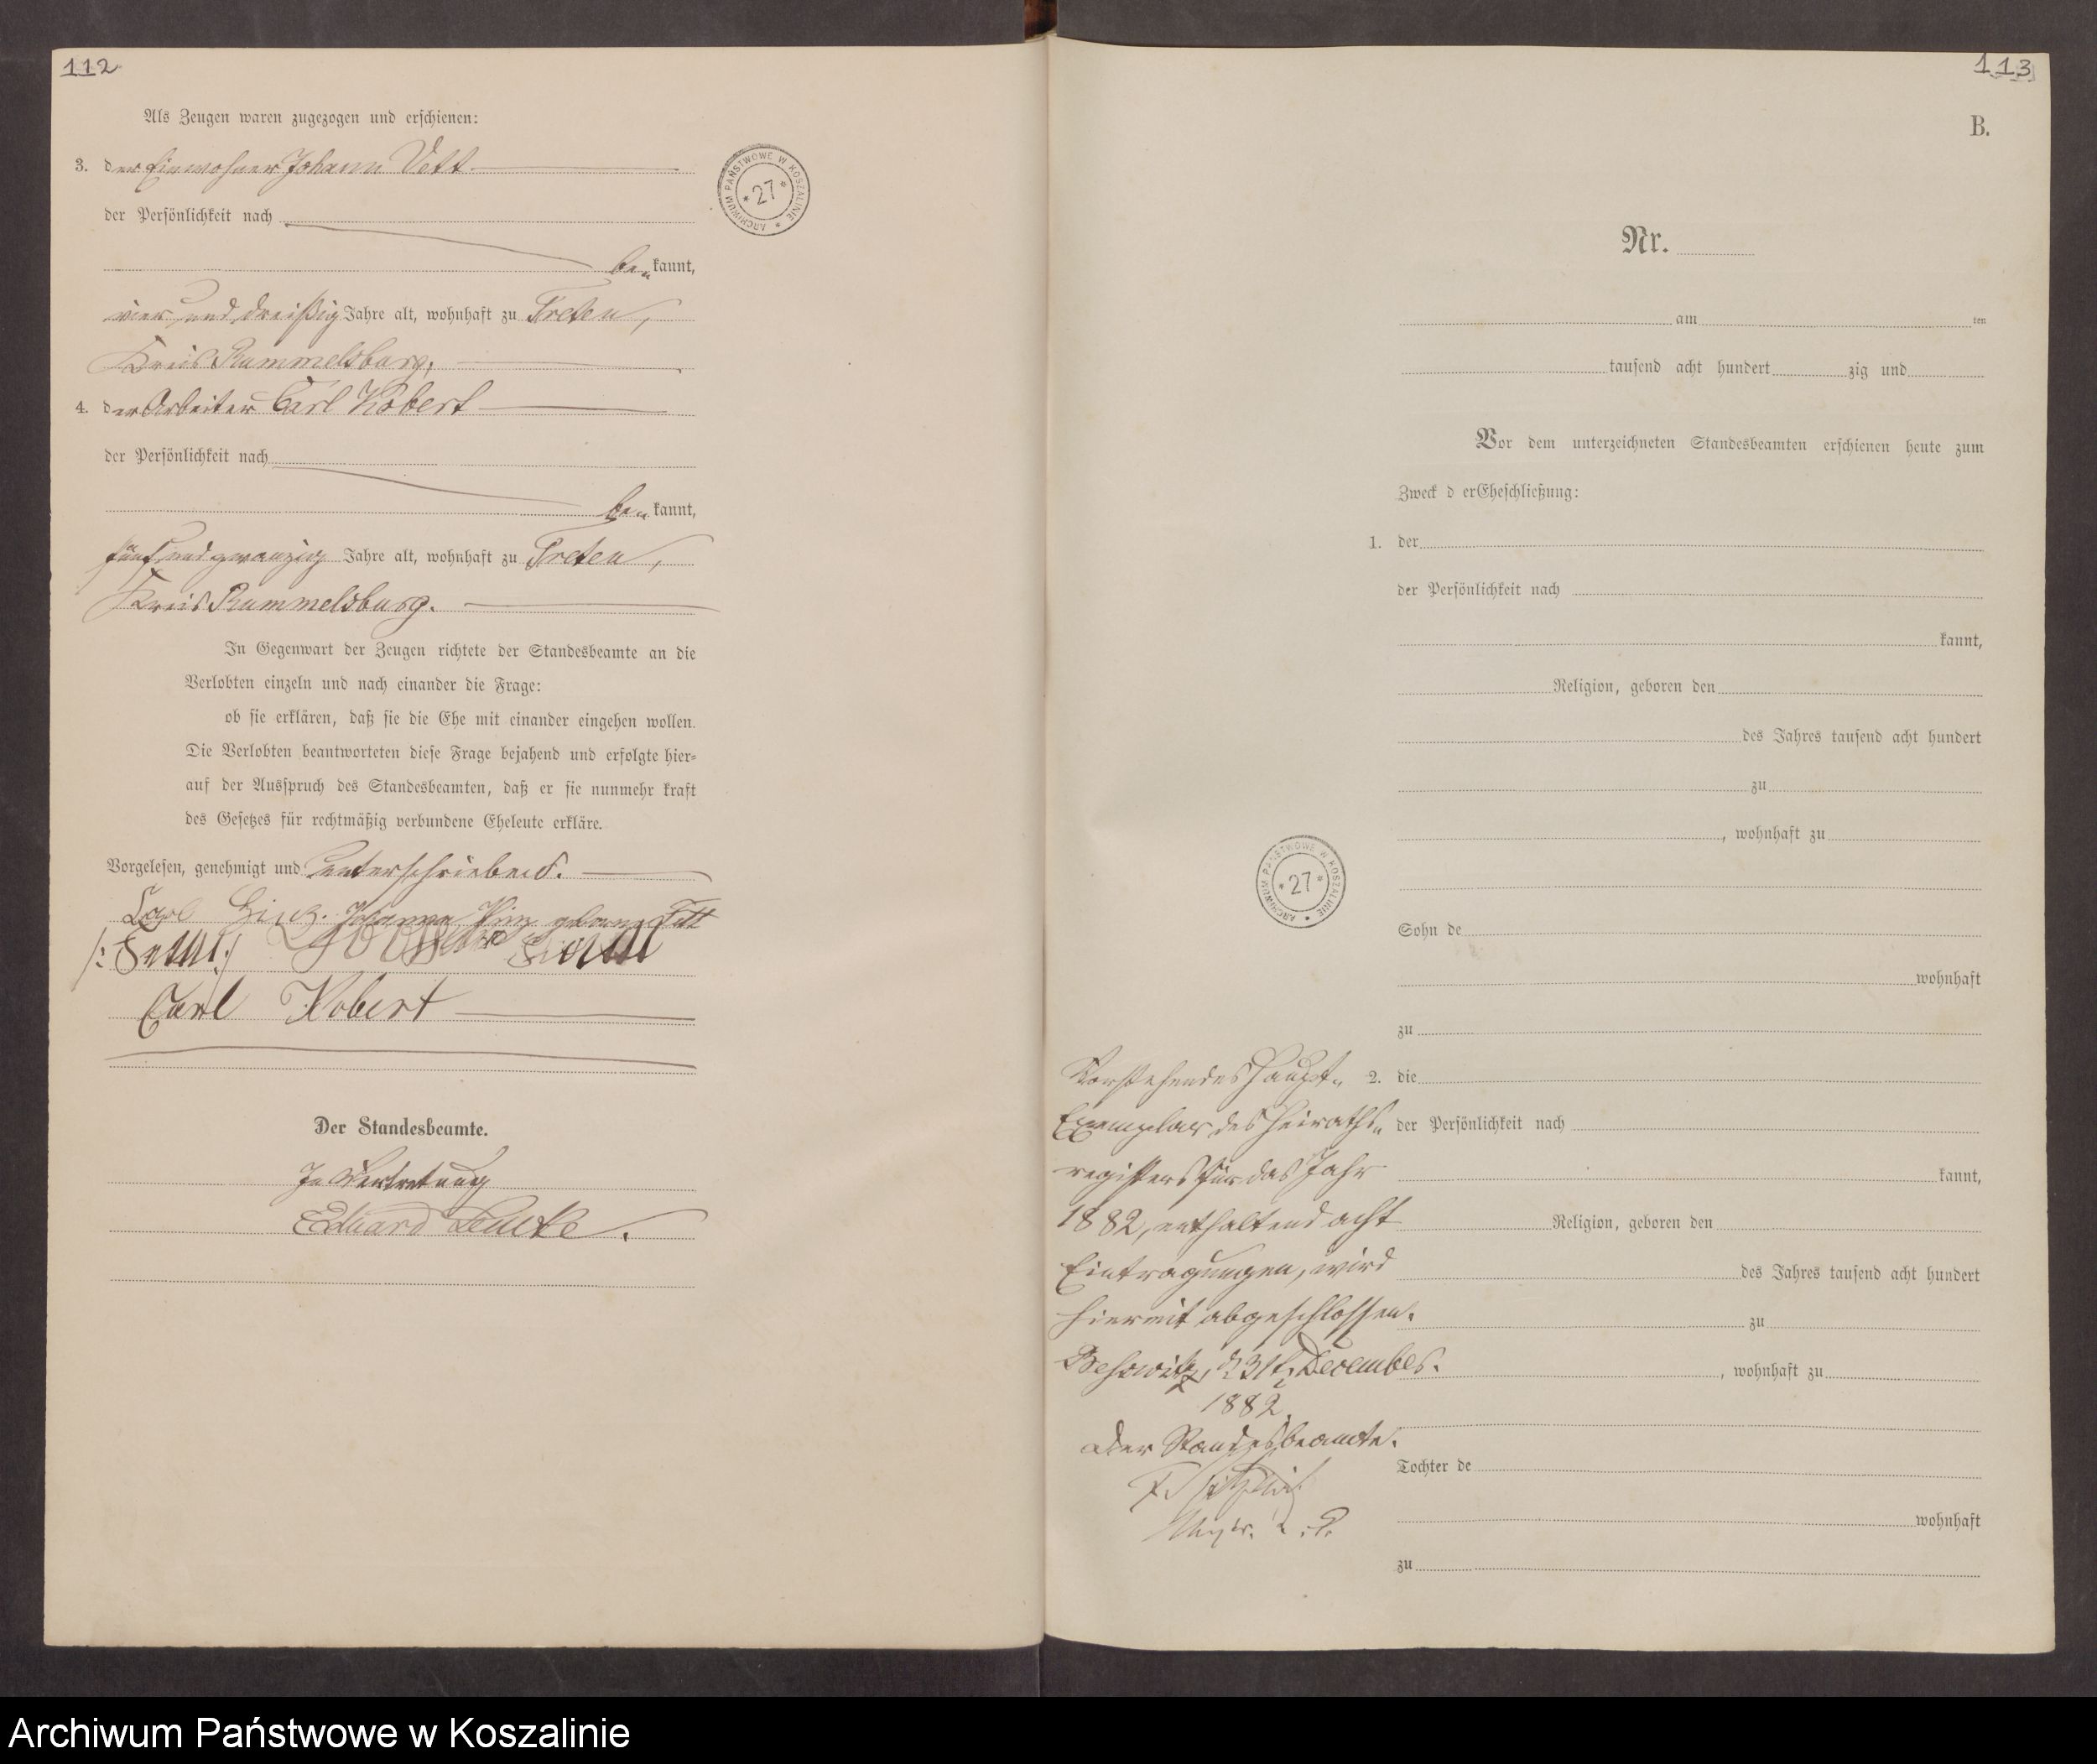 112
Als Zeugen waren zugezogen und erschienen:
3. der Einwohner Johann Vett
der Persönlichkeit nach
be„kannt,
vier und dreißig Jahre alt, wohnhaft zu Treten,
Kreis Rummelsburg;
4. der Arbeiter Carl Kobert
der Persönlichkeit nach
be„kannt,
fünf und zwanzig Jahre alt, wohnhaft zu Treten,
Kreis Rummelsburg.
In Gegenwart der Zeugen richtete der Standesbeamte an die
Verlobten einzeln und nach einander die Frage:
ob sie erklären, daß sie die Ehe mit einander eingehen wollen.
Die Verlobten beantworteten diese Frage bejahend und erfolgte hier-
auf der Ausspruch des Standesbeamten, daß er sie nunmehr kraft
des Gesetzes für rechtmäßig verbundene Eheleute erkläre.
Vorgelesen, genehmigt und unterschrieben.
Carl Johanna geborne
Carl Kobert
Der Standesbeamte.
In Vertretung
Eduard
ARCHIWUM PAŃSTWOWE W KOSZALINIE
* 27 *
113
B.
Nr.
am ten
tausend acht hundert zig und
Vor dem unterzeichneten Standesbeamten erschienen heute zum
Zweck d erEheschließung:
1. der
der Persönlichkeit nach
kannt,
Religion, geboren den
des Jahres tausend acht hundert
zu
, wohnhaft zu
ARCHIWUM PAŃSTWOWE W KOSZALINIE
* 27 *
Sohn de
wohnhaft
zu
2. die
der Persönlichkeit nach
kannt,
Religion, geboren den
des Jahres tausend acht hundert
zu
, wohnhaft zu
Tochter de
wohnhaft
zu
Vorstehendes Haupt„
Exemplar des Heiraths„
registers für das Jahr
1882, enthaltend acht
Eintragungen, wird
hiermit abgeschlossen.
d. 31t. December.
1882.
Der Standesbeamte.
Archiwum Państwowe w Koszalinie